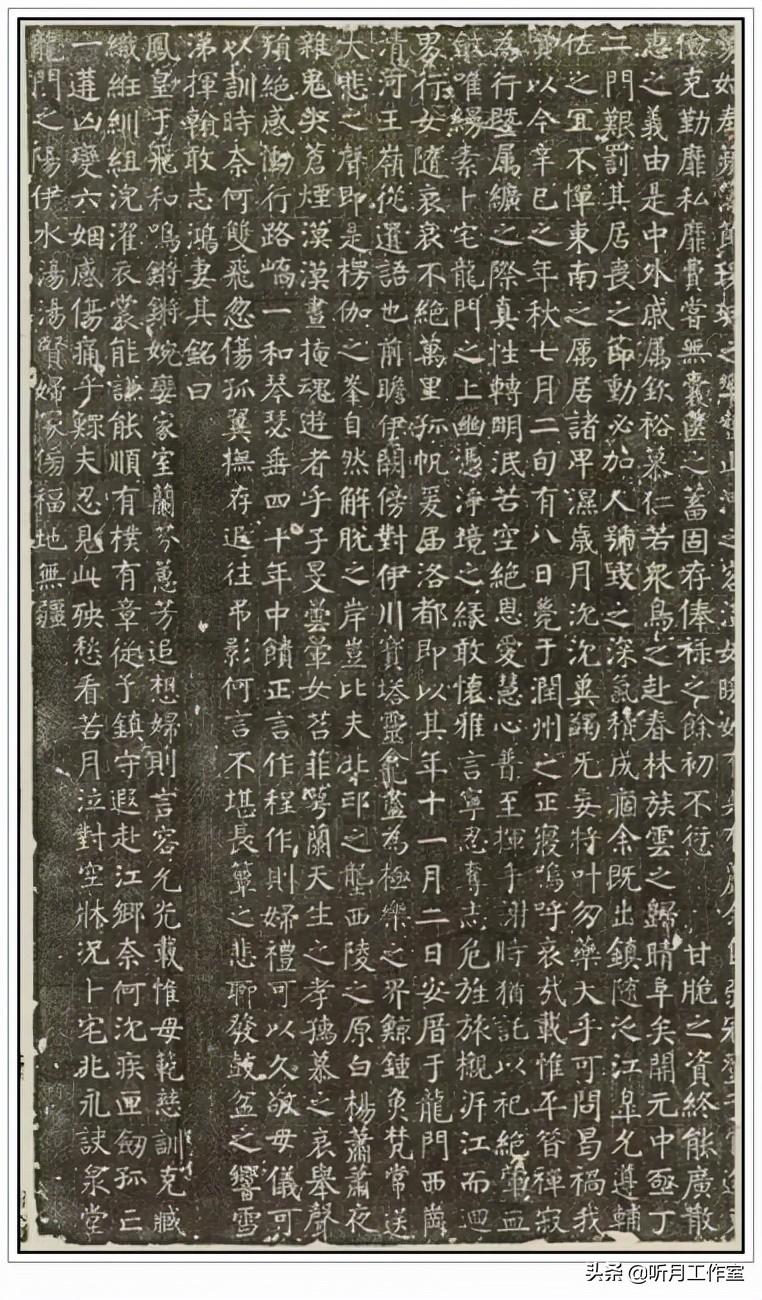 儉克勤靡私靡費嘗無囊篋之蓄固存俸祿之餘初不衍甘脆之資終能廣散
惠之義由是中外戚属欽裕慕仁若衆鳥之赴春林族雲之歸晴阜矣開元中亟丁
二門艱罰其居喪之節動必加人號毀之深氣積成痼余既出鎮隨泛江皋允遵輔
佐之宜不憚東南之厲居諸卑濕歲月沈沈奠蠲无妄將叶勿藥大乎可問曷禍我
以今辛巳之年秋七月二旬有八日薨于潤州之正寢嗚呼哀哉載惟平昔禪寂
為行暨属纊之際真性轉明泯苦空絕恩愛慧心普至揮手謝時猶託以祀絕葷血
斂唯縵素卜宅龍門之上幽憑淨境之緣敢懷雅言寧忍奪志危旌旅櫬泝江而迴
男行女隨哀哀不絕萬里孤帆爰届洛都即以其年十一月二日安厝于龍門西崗
清河王嶺從遷語也前瞻伊闕傍對伊川寶塔靈龕盡為極樂之界鯨鍾魚梵常送
大悲之聲即是楞伽之峯自然解脫之岸豈比夫北邙之壟西陵之原白楊蕭蕭夜
雜鬼哭蒼煙漠漠晝掩魂遊者乎子旻曇暈女苕菲萼蘭天生之孝孺慕之哀舉聲
殞絕感慟行路嶠一和琴瑟垂四十年中饋正言作程作則婦禮可以久敬母儀可
以訓時奈何雙飛忽傷孤翼撫存追往弔影何言不堪長簟之悲聊發鼓盆之響雪
涕揮翰敢志鴻妻其銘曰
鳳皇于飛和鳴鏘鏘婉孌家室蘭芬蕙芳追想婦則言容允光載惟母範慈訓克臧
織紝紃組浣濯衣裳能謙能順有樸有章從予鎮守遐赴江鄉奈何沈疾匣劒孤亡
一遘凶變六姻感傷痛乎鰥夫忍見此殃愁看苦月泣對空牀況卜宅兆永訣泉堂
龍門之陽伊水湯湯賢婦冢傷福地無疆
头条 @听月工作室